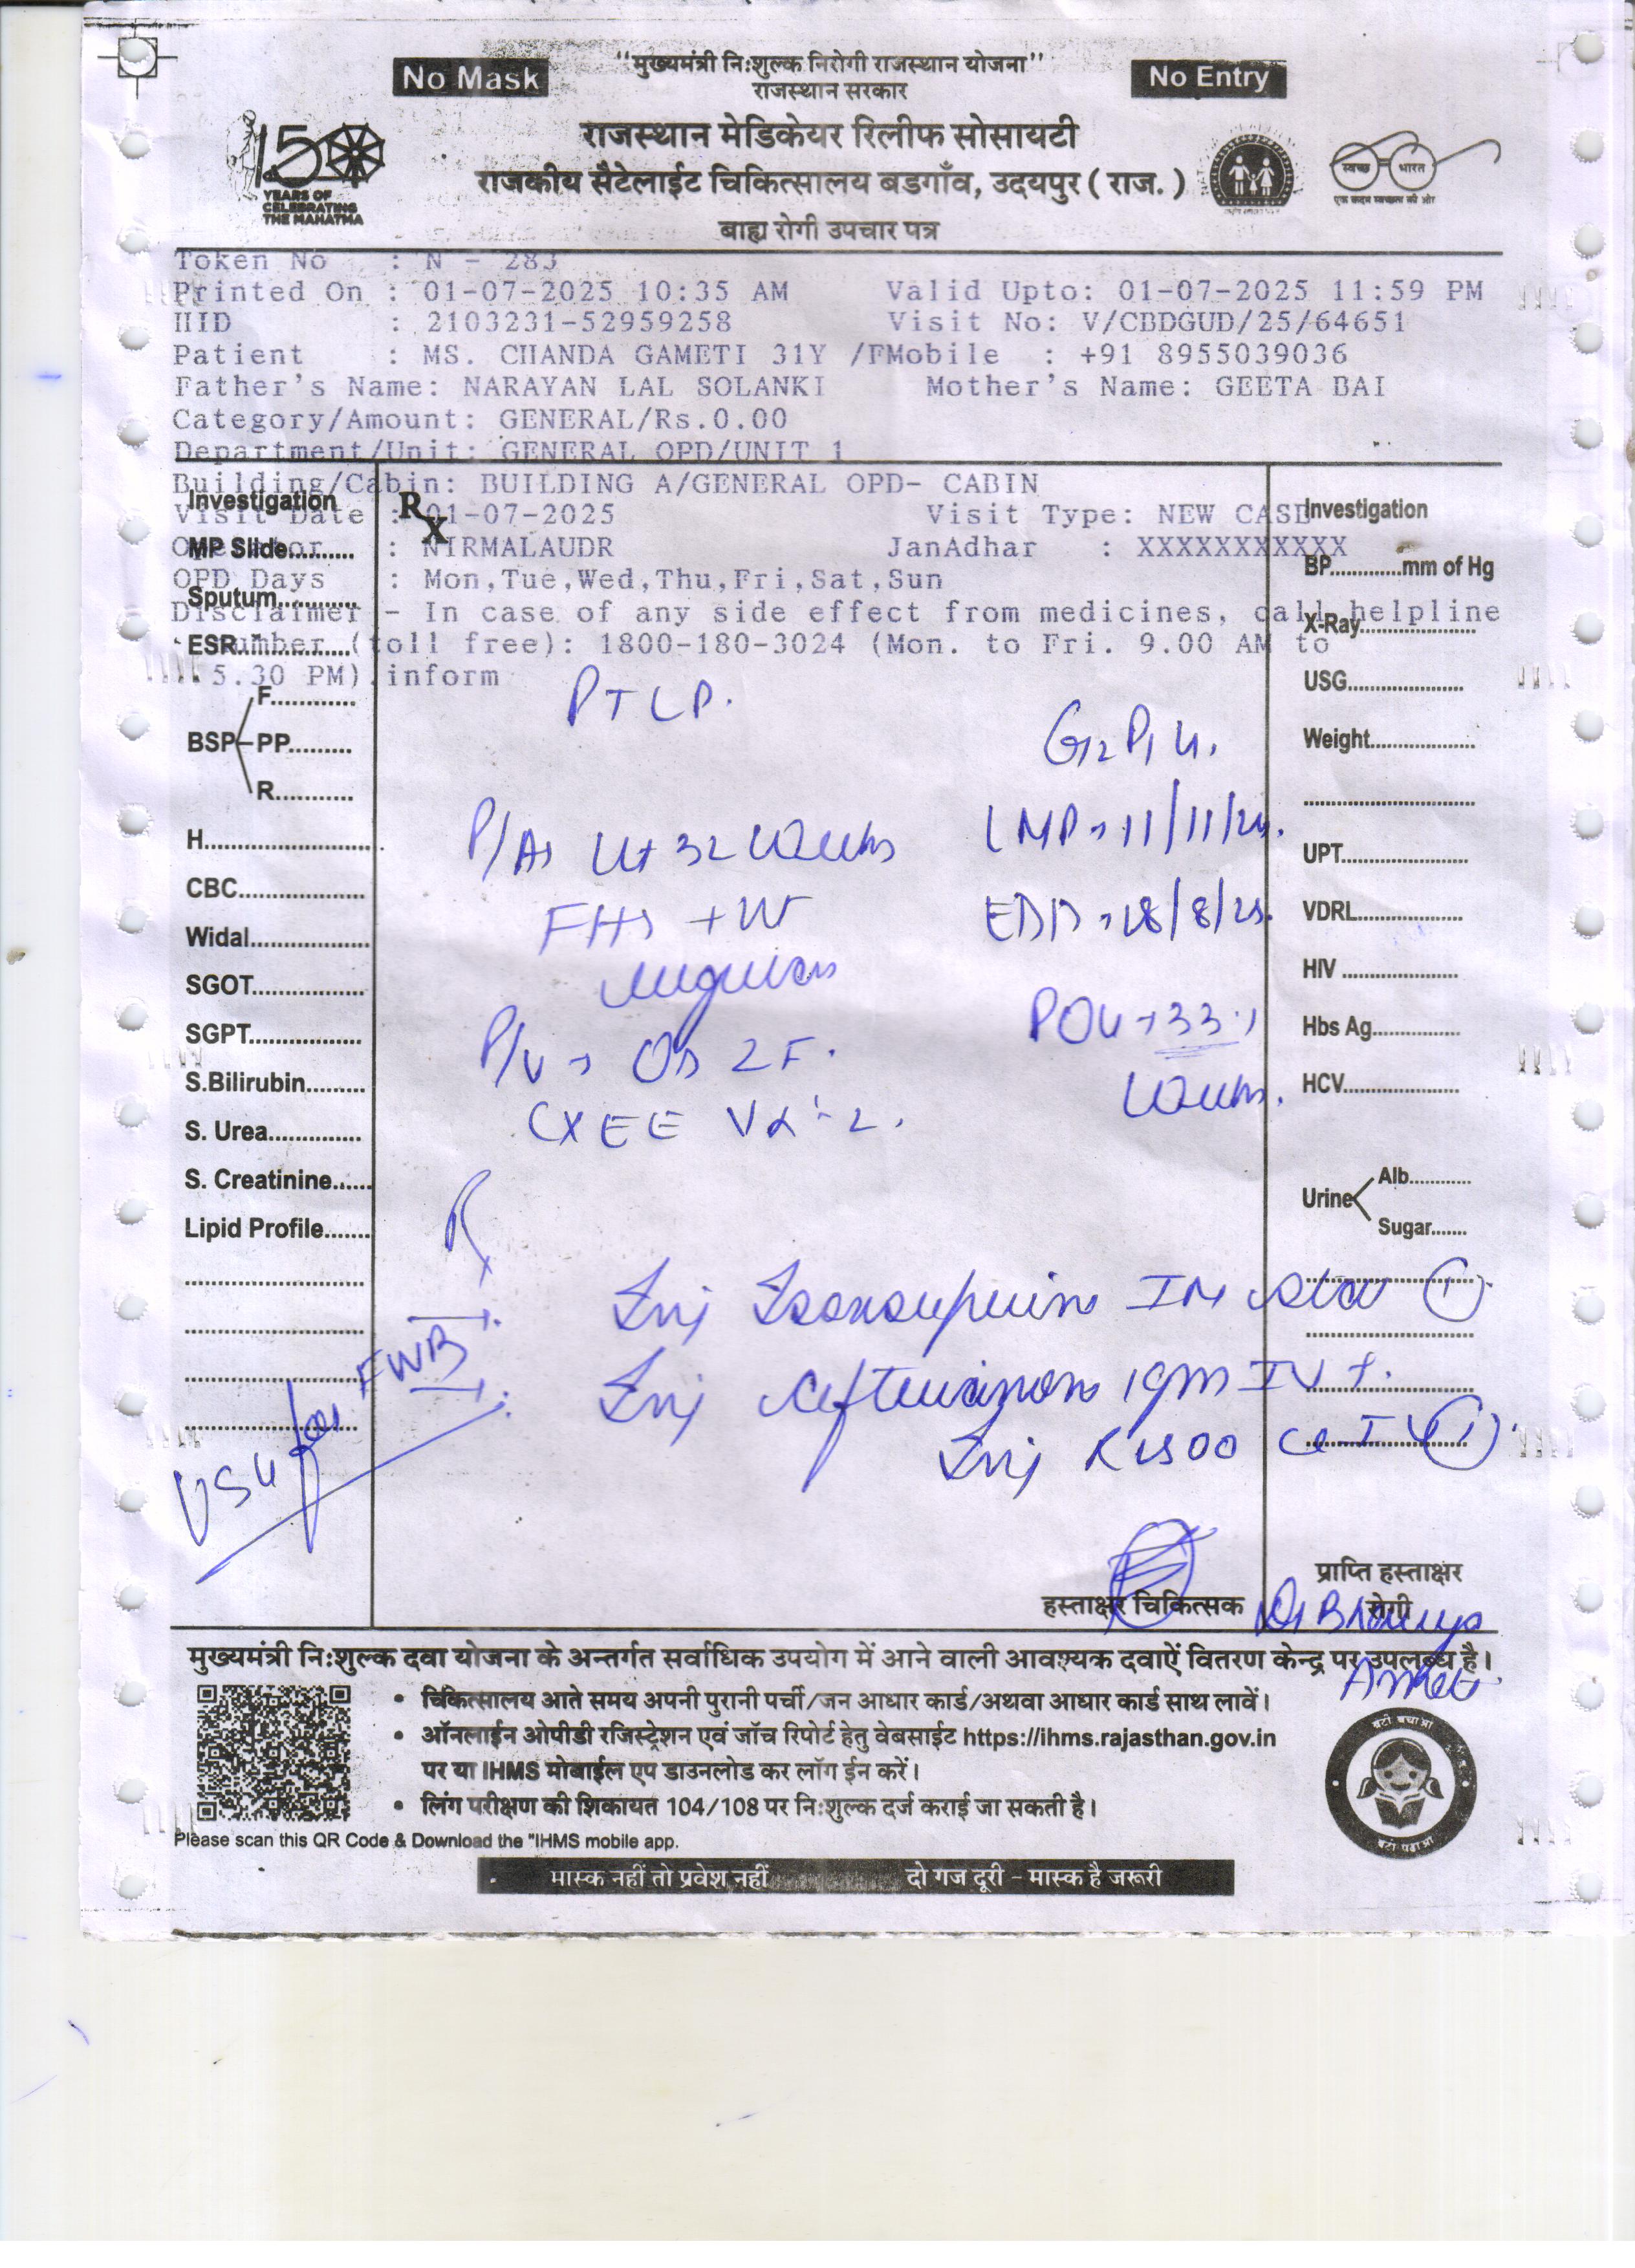 No Mask
"मुख्यमंत्री निःशुल्क निरोगी राजस्थान योजना"
No Entry
राजस्थान सरकार
राजस्थान मेडिकेयर रिलीफ सोसायटी
राजकीय सैटेलाईट चिकित्सालय बडगाँव, उदयपुर ( राज. )
150
YEARS OF
CELEBRATING
THE MAHATMA
स्वच्छ भारत
एक कदम स्वच्छता की ओर
बाह्य रोगी उपचार पत्र
Token No : N - 283
Printed On : 01-07-2025 10:35 AM Valid Upto: 01-07-2025 11:59 PM
HID : 2103231-52959258 Visit No: V/CBDGUD/25/64651
Patient : MS. CHANDA GAMETI 31Y /FMobile : +91 8955039036
Father's Name: NARAYAN LAL SOLANKI Mother's Name: GEETA BAI
Category/Amount: GENERAL/Rs.0.00
Department/Unit: GENERAL OPD/UNIT 1
Building/Cabin: BUILDING A/GENERAL OPD- CABIN
Visit Date : 01-07-2025 Visit Type: NEW CASE
Operator : NIRMALAUDR JanAdhar : XXXXXXXXXXX
OPD Days : Mon,Tue,Wed,Thu,Fri,Sat,Sun
Disclaimer - In case of any side effect from medicines, call helpline
number (toll free): 1800-180-3024 (Mon. to Fri. 9.00 AM to
5.30 PM) inform
Investigation
MP Slide..........
Sputum............
ESR................
BSP
F............
PP.........
R...........
H........................
CBC..................
Widal.................
SGOT................
SGPT................
S.Bilirubin.........
S. Urea..............
S. Creatinine......
Lipid Profile.......
Rx
PTLP.
G2P1L1.
P/A→ Ut 32 Weeks
LMP→11/11/24.
FHS +W
EDD→18/8/25.
P/V→ Os 2F.
POG→33.1
Weeks.
R
Inj Isoxsuprine IM stat 1
Inj Ceftriaxone 1gm IV
Inj RL 500 cc IV 1
USG for FWB
Investigation
BP.............mm of Hg
X-Ray.....................
USG.....................
Weight...................
UPT.......................
VDRL...................
HIV .....................
Hbs Ag................
HCV.....................
Urine
Alb............
Sugar.......
हस्ताक्षर चिकित्सक
प्राप्ति हस्ताक्षर
रोगी
मुख्यमंत्री निःशुल्क दवा योजना के अन्तर्गत सर्वाधिक उपयोग में आने वाली आवश्यक दवाऐं वितरण केन्द्र पर उपलब्ध है।
• चिकित्सालय आते समय अपनी पुरानी पर्ची/जन आधार कार्ड/अथवा आधार कार्ड साथ लावें।
• ऑनलाईन ओपीडी रजिस्ट्रेशन एवं जाँच रिपोर्ट हेतु वेबसाईट https://ihms.rajasthan.gov.in
पर या IHMS मोबाईल एप डाउनलोड कर लॉग ईन करें।
• लिंग परीक्षण की शिकायत 104/108 पर निःशुल्क दर्ज कराई जा सकती है।
Please scan this QR Code & Download the "IHMS mobile app.
बेटी बचाओ
बेटी पढ़ाओ
मास्क नहीं तो प्रवेश नहीं दो गज दूरी - मास्क है जरूरी